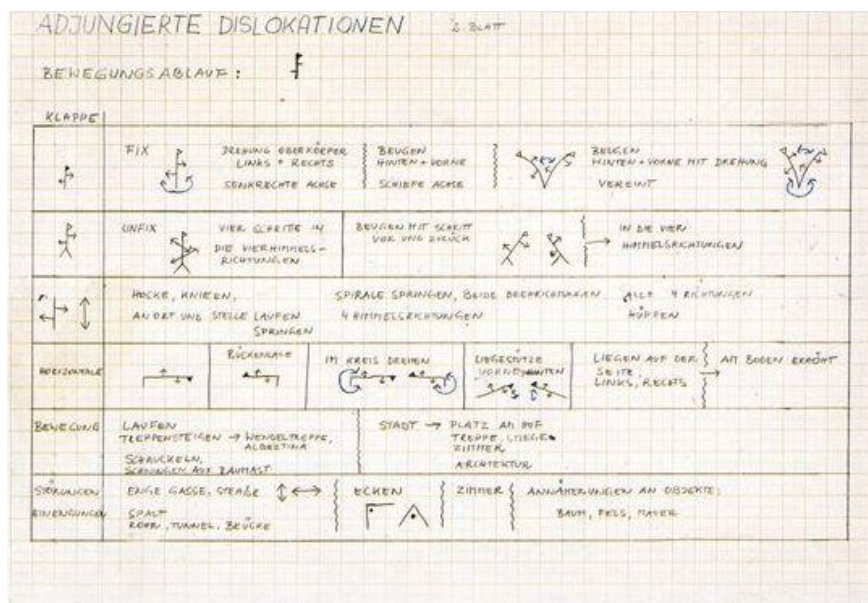 ADJUNGIERTE DISLOKATIONEN 2. BLATT
BEWEGUNGSABLAUF:
KLAPPE
FIX DREHUNG OBERKÖRPER LINKS + RECHTS
SENKRECHTE ACHSE
BEUGEN HINTEN + VORNE
SCHIEFE ACHSE
BEUGEN HINTEN + VORNE MIT DREHUNG
VEREINT
UNFIX VIER SCHRITTE IN DIE VIER HIMMELS-
RICHTUNGEN
BEUGEN MIT SCHRITT
VOR UND ZURÜCK
IN DIE VIER
HIMMELSRICHTUNGEN
HOCKE, KNIEEN,
AN ORT UND STELLE LAUFEN
SPRINGEN
SPIRALE SPRINGEN, BEIDE DREHRICHTUNGEN
4 HIMMELSRICHTUNGEN
ALLE 4 RICHTUNGEN
HÜPFEN
HORIZONTALE
RÜCKENLAGE
IM KREIS DREHEN
LIEGESTÜTZE
VORNE HINTEN
LIEGEN AUF DER
SEITE,
LINKS, RECHTS
AM BODEN ERHÖHT
BEWEGUNG
LAUFEN
TREPPENSTEIGEN → WENDELTREPPE,
ALBERTINA
SCHAUKELN,
SCHWINGEN AUF BAUMAST
STADT → PLATZ AM HOF
TREPPE, STIEGE
ZIMMER
ARCHITEKTUR
STÖRUNGEN
EINENGUNGEN
ENGE GASSE, STRAßE
SPALT
ROHR, TUNNEL, BRÜCKE
ECKEN
ZIMMER
ANNÄHERUNGEN AN OBJEKTE:
BAUM, FELS, MAUER